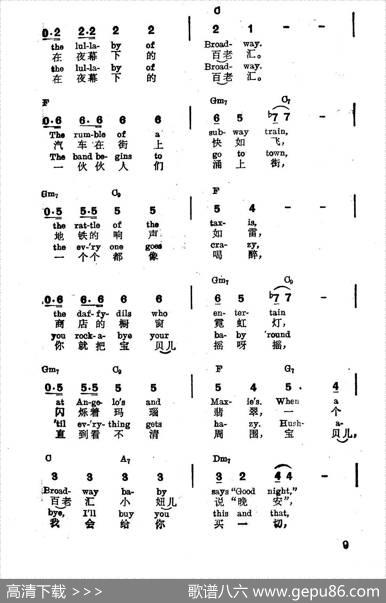 C
0·2 2·2 2 2 | 2 1 - - |
the lul-la- by of Broad- way.
在 夜幕 下 的 百老汇。
the lul-la- by of Broad- way.
在 夜幕 下 的 百老汇。
F Gm7 C7
0·6 6·6 6 6 | 6 5 ♭7 7 |
The rum-ble of a sub- way train,
汽 车在 街 上 快 如 飞,
The band be-gins to go to town,
一 伙伙 人 们 涌 上 街,
Gm7 C9 F
0·5 5·5 5 5 | 5 4 - - |
the rat-tle of the tax- is,
地 铁的 响 声 如 雷,
the ev-'ry one goes cra- zy,
一 个个 都 像 喝 醉,
Gm7 C9
0·6 6·6 6 6 | 6 5 ♭7 7 |
the daf-fy-dils who en- ter- tain
商 店的 橱 窗 霓 虹 灯,
you rock-a- bye your ba- by 'round
你 就把 宝 贝儿 摇 呀 摇,
Gm7 C9 F G7
0·5 5·5 5 5 | 5 4 5 4 |
at An-ge- lo's and Max- ie's. When a
闪 烁着 玛 瑙 翡 翠, 一 个
'til ev-'ry-thing gets ha- zy. Hush- a-
直 到看 不 清 周 围, 宝 贝儿,
C A7 Dm7
3 3 3 3 | 3 2 4 4 |
Broad- way ba- by says "Good night,"
百老 汇 小 妞儿 说 "晚 安",
bye, I'll buy you this and that,
我 会 给 你 买 一 切,
9
高清下载 >>>
歌谱八六 www.gepu86.com